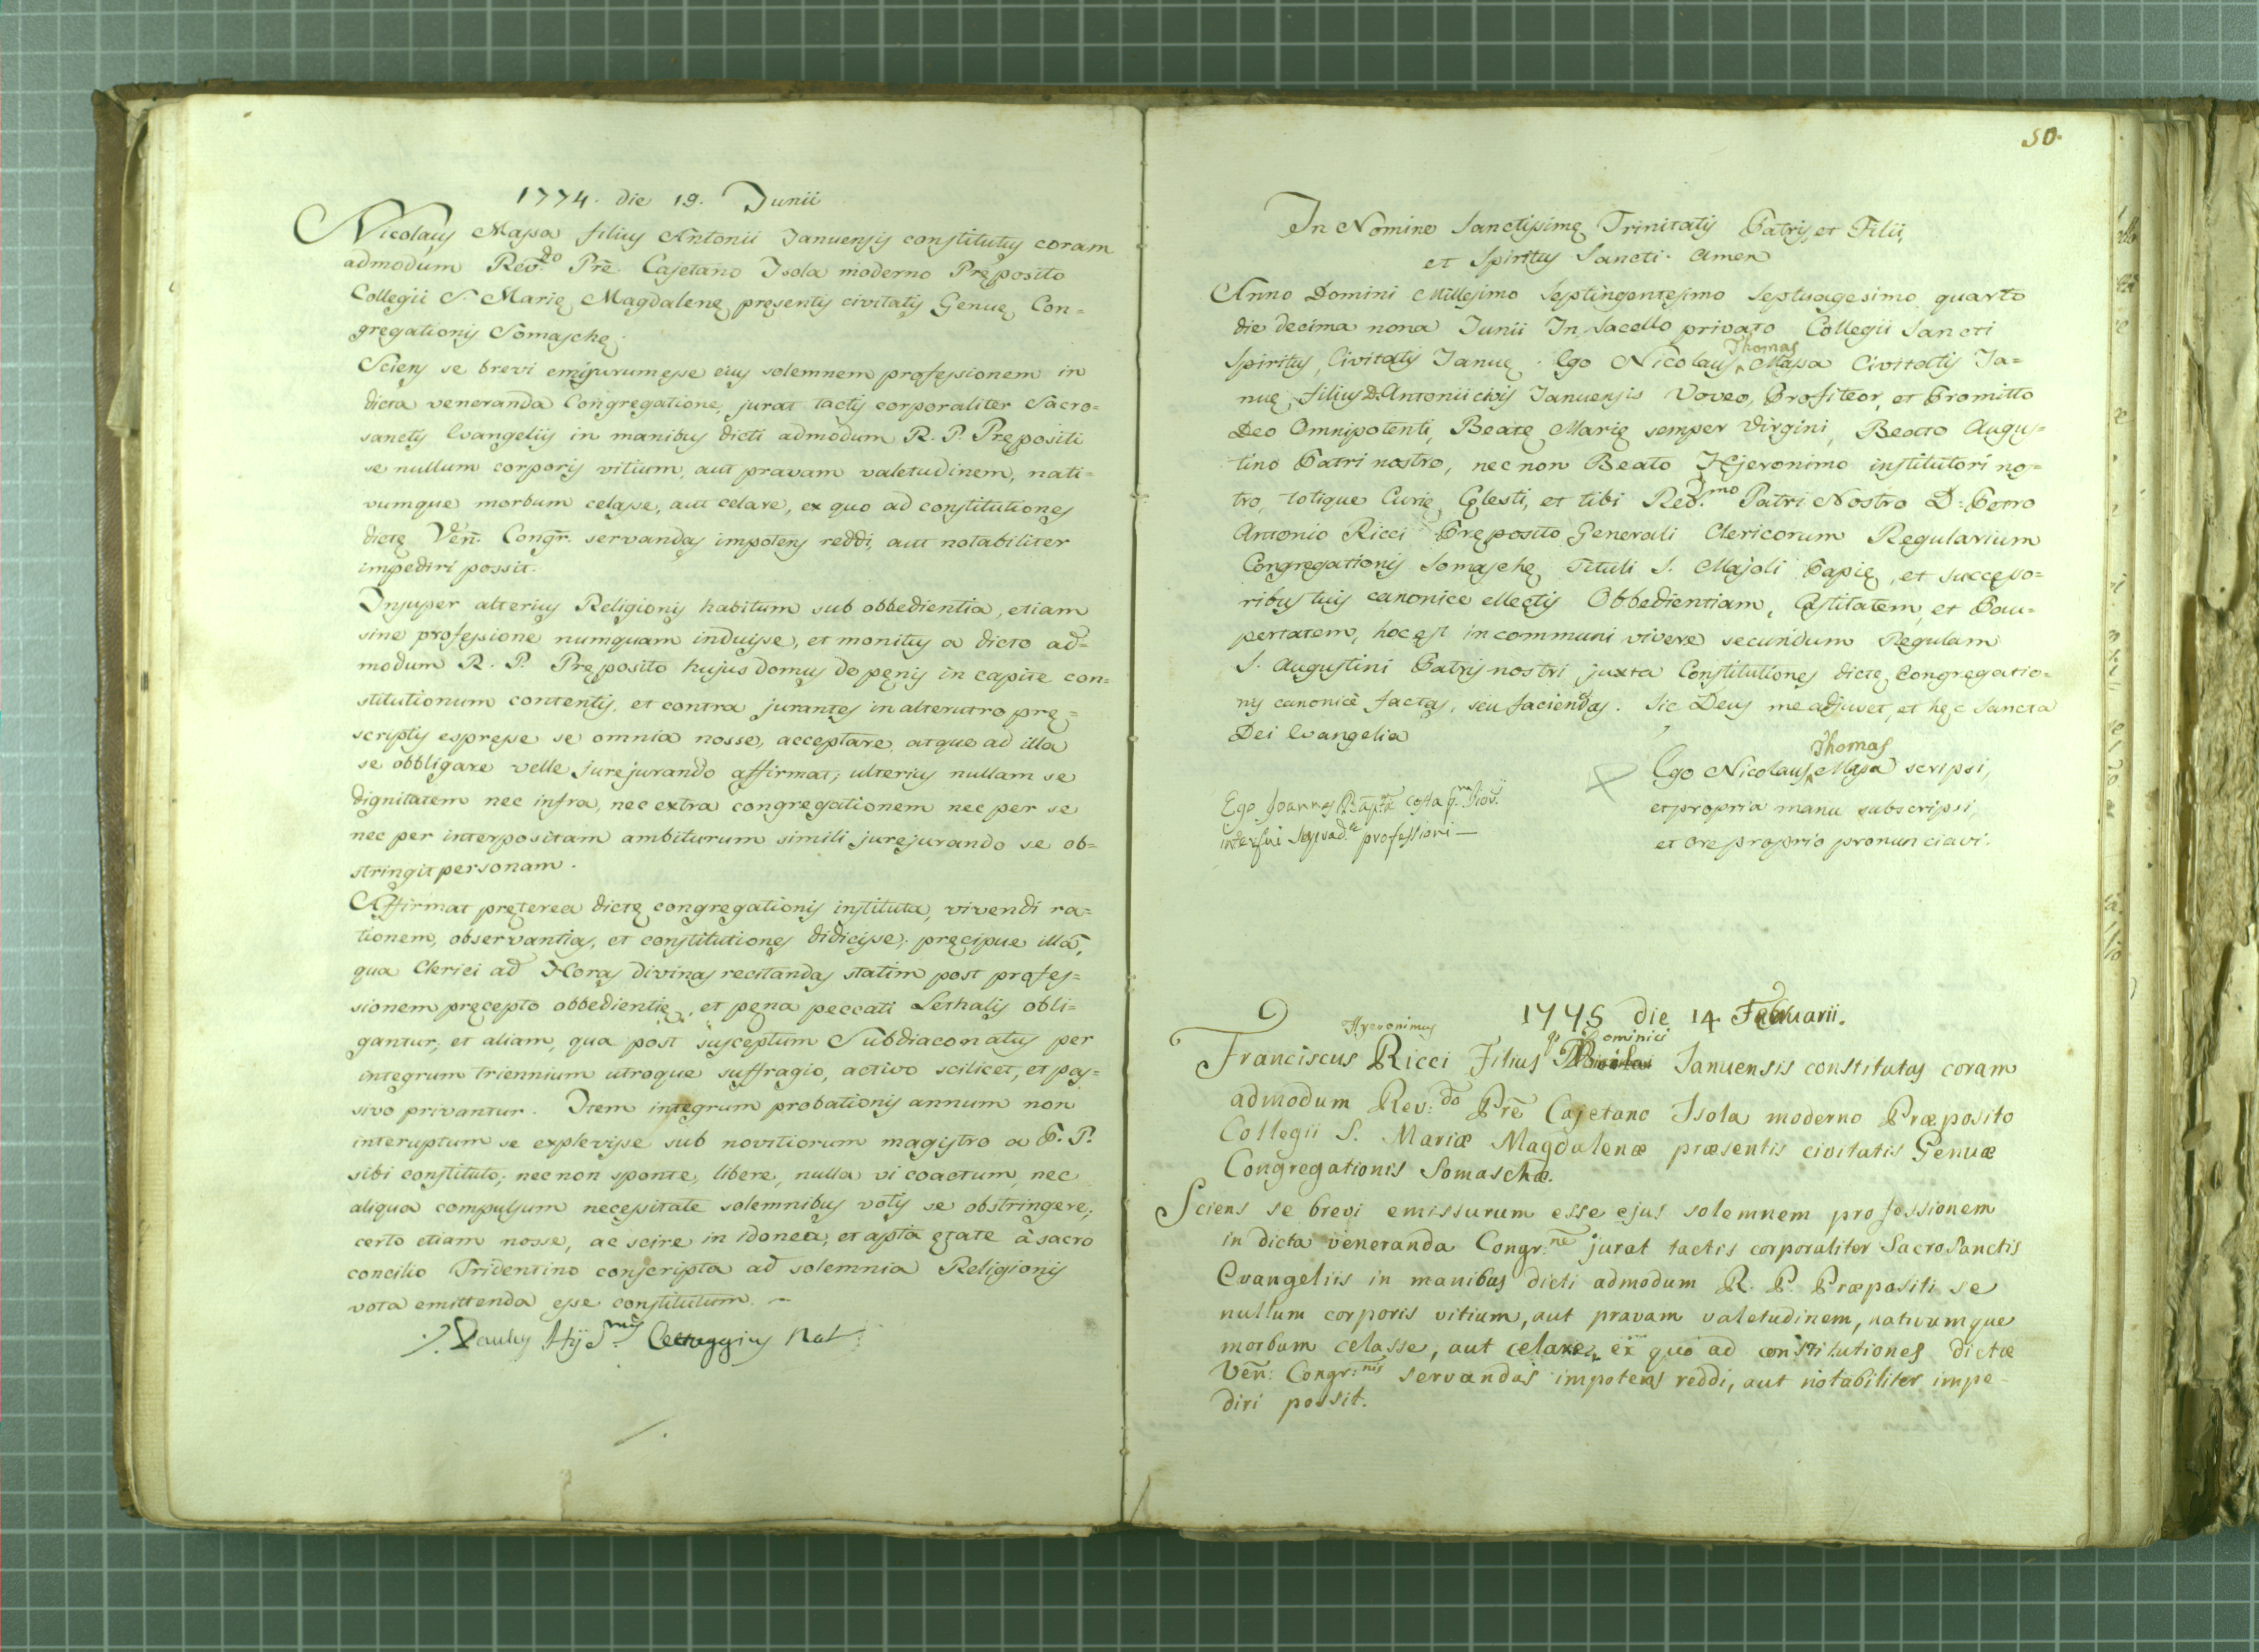 1774. die 19. Junii
Nicolaus Massa filius Antonii Januensis constitutus coram
admodum Rev.do Pre Cajetano Isola moderno Pręposito
Collegii S. Marię Magdalenę pręsentis civitatis Genuę Con=
gregationis Somaschę.
Sciens se brevi emissurum esse eius solemnem professionem in
dicta veneranda Congregatione, jurat tactis corporaliter Sacro=
sanctis Evangeliis in manibus dicti admodum R. P. Prępositi
se nullum corporis vitium, aut pravam valetudinem, nati=
vumque morbum celasse, aut celare, ex quo ad constitutiones
dictę Ven. Congr. servandas impotens reddi, aut notabiliter
impediri possit.
Insuper alterius Religionis habitum sub obbedientia, etiam
sine professione numquam induisse, et monitus a dicto ad=
modum R. P. Pręposito hujus domus de pęnis in capite con=
stitutionum contentis, et contra jurantes in alterutro prę=
scriptis espresse se omnia nosse, acceptare, atque ad illa
se obbligare velle jurejurando affirmat; ulterius nullam se
dignitatem nec infra, nec extra congregationem nec per se
nec per interpositam ambiturum simili jurejurando se ob=
stringit personam.
Affirmat pręterea dictę congregationis instituta, vivendi ra=
tionem, observantias, et constitutiones didicisse; pręcipue illā,
qua Clerici ad Horas divinas recitandas statim post profes=
sionem pręcepto obbedientię, et pęna peccati Lethalis obli=
gantur, et aliam, qua post susceptum Subdiaconatus per
integrum triennium utroque suffragio, activo scilicet, et pas=
sivo privantur. Item integrum probationis annum non
interuptum se explevisse sub novitiorum magistro a P. P.
sibi constituto; nec non sponte, libere, nulla vi coactum, nec
aliqua compulsum necessitate solemnibus votis se obstringere;
certo etiam nosse, ac scire in idonea, et apta ętate à sacro
concilio Tridentino conscripta ad solemnia Religionis
vota emittenda esse constitutum.
Paulus Not.
50.
In Nomine Sanctissimę Trinitatis Patris, et Filii,
et Spiritus Sancti. Amen
Anno Domini Millesimo Septingentesimo Septuagesimo quarto
die decima nona Junii In Sacello privato Collegii Sancti
Spiritus, Civitatis Januę. Ego Nicolaus Thomas Massa Civitatis Ja=
nuę, filius D. Antonii civis Januensis Voveo, Profiteor, et Promitto
Deo Omnipotenti, Beatę Marię semper Virgini, Beato Augus=
tino Patri nostro, nec non Beato Hjeronimo institutori nos=
tro, totique Curię Cęlesti, et tibi Rev.mo Patri Nostro D: Petro
Antonio Ricci Pręposito Generali Clericorum Regularium
Congregationis Somaschę Tituli S. Majoli Papię, et successo=
ribus tuis canonice ellectis Obbedientiam, Castitatem, et Pau=
pertatem, hoc est in communi vivere secundum Regulam
S. Augustini Patris nostri juxta Constitutiones dictę Congregatio=
nis canonicè factas, seu faciendas. Sic Deus me adjuvet, et hęc Sancta
Dei Evangelia
Ego Nicolaus Thomas Massa scripsi,
et propria manu subscripsi,
et ore proprio pronunciavi.
Ego Joannes Bapta Costa q. Jiov.
interfui professioni
1775 die 14 Februarii.
Franciscus Hyeronimus Ricci Filius q. Dominici Januensis constitutus coram
admodum Rev:do Prē Cajetano Isola moderno Præposito
Collegii S. Mariæ Magdalenæ præsentis civitatis Genuæ
Congregationis Somaschæ.
Sciens se brevi emissurum esse ejus solemnem professionem
in dicta veneranda Congr:ne jurat tactis corporaliter SacroSanctis
Evangeliis in manibus dicti admodum R. P. Præpositi se
nullum corporis vitium, aut pravam valetudinem, nativumque
morbum celasse, aut celare, ex quo ad constitutiones dictæ
Ven: Congr:nis servandas impotens reddi, aut notabiliter impe
diri possit.